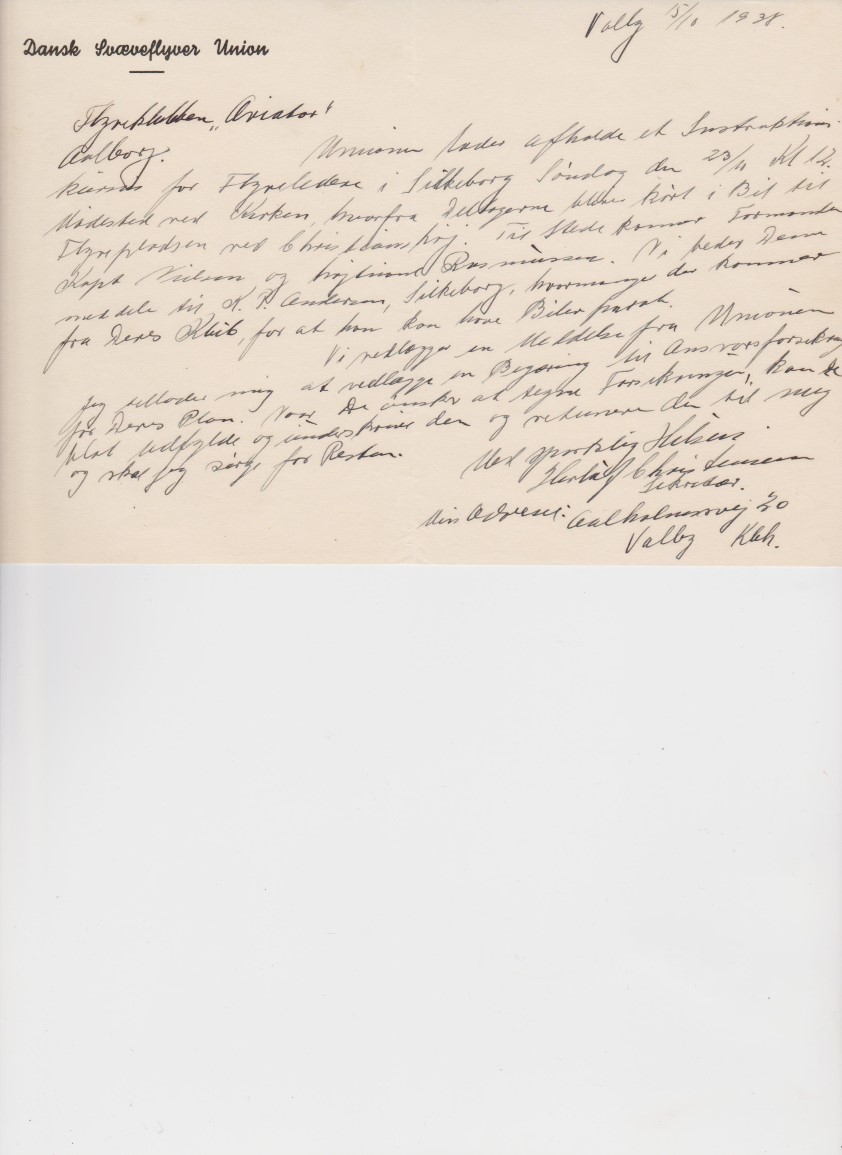 Valby 15/10 1938.
Dansk Svæveflyver Union
Flyveklubben "Aviator"
Aalborg.
Unionen lader afholde et Instruktions-
kursus for Flyveledere i Silkeborg Søndag den 23/ Kl 12.
Mødested ved Kirken, hvorfra Deltagerne blive kørt i Bil til
Flyvepladsen ved Christianshøj. Til Stede kommer Formanden
Kapt Nielsen og Rasmussen. Vi beder Dem
meddele til K. P. Andersen, Silkeborg, hvormange der kommer
fra Deres Klub, for at han kan have Biler parat.
Vi vedlægger en Meddelelse fra Unionen
Jeg tillader mig at vedlægge en Begæring til Ansvarsforsikring
for Deres Plan. Naar De ønsker at tegne Forsikringen, kan De
blot udfylde og underskrive den og returnere den til mig
og skal jeg sørge for Resten.
Med sportslig Hilsen
Christensen
Sekretær.
Min Adresse: Aalholmsvej 20
Valby Kbh.